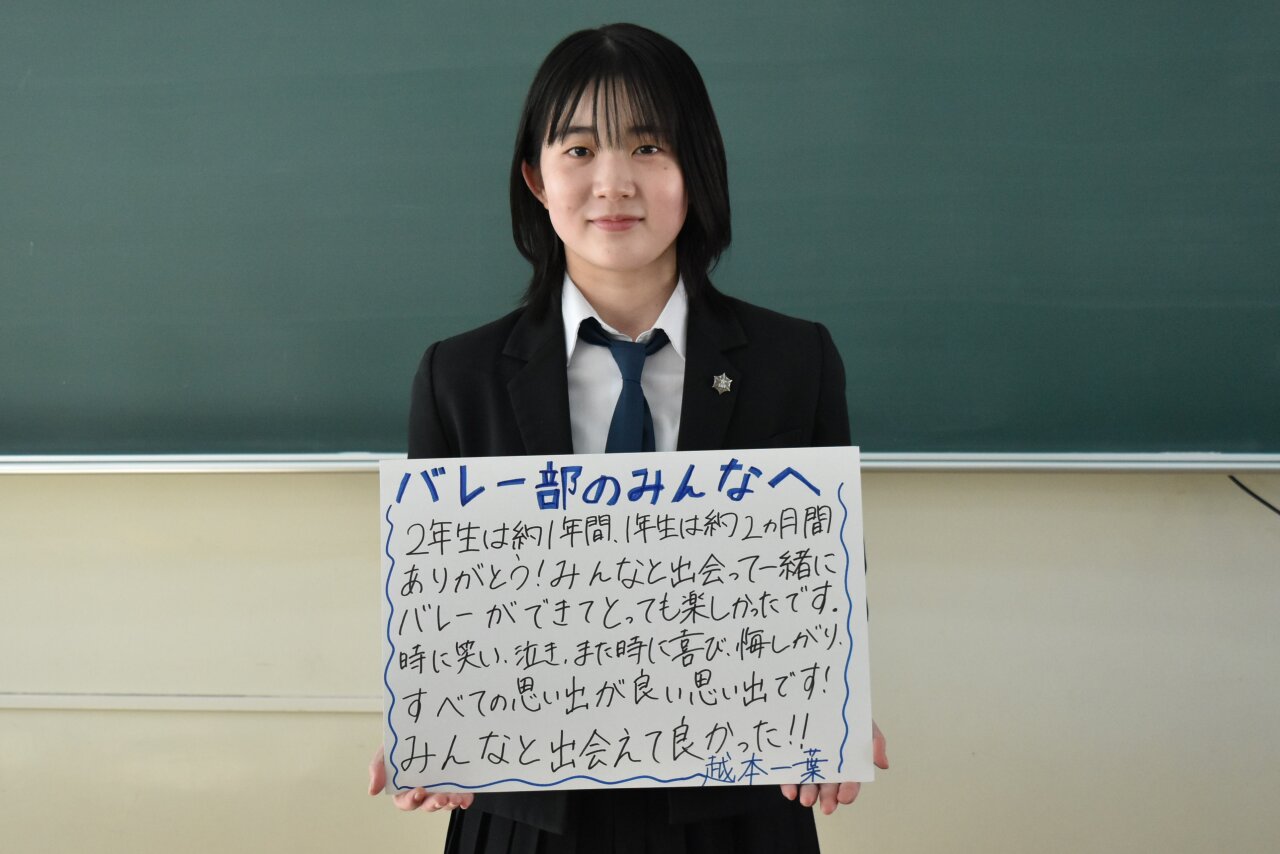 バレー部のみんなへ
2年生は約1年間、1年生は約2ヵ月間
ありがとう!みんなと出会って一緒に
バレーができてとっても楽しかったです。
時に笑い、泣き、また時に喜び、悔しがり、
すべての思い出が良い思い出です!
みんなと出会えて良かった!!
越本一葉